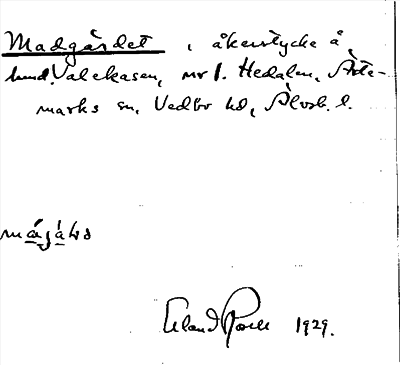 Madgärdet, åkerstycke å
hmd. Valekasen, nr 1. Hedalen, Årte-
marks sn, Vedbo hd, Älvsb. l.
Erland Rosell 1929.